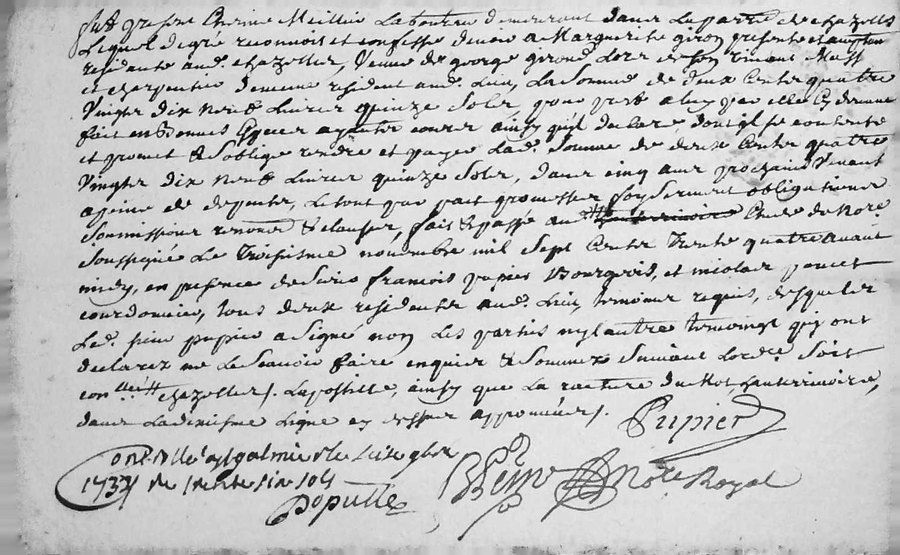 fut présent Cherine Meillier Laboureur demeurant dans La parroisse de chazelles
Lequel de gré reconnoit et confesse devoir a Marguerite giron présente et acceptant
residante aud. chazelles, Veuve de george girond, Lors de son vivant Me
et charpentier demeure résident aud. Lieu, La somme de deux Centes quatre
Vingtes dix neuf Livres quinze Soles, pour prest a luy par elle Cy devant
fait en bonnes Especes ayantes courre ainsy quil declare dont il se contente
et promet & s'oblige rendre et payer Lad. Somme de deux Centes quatre
Vingtes dix neuf Livres quinze Soles, dans cinq ans prochains Venant
a peine de depentes, Le tout par pait promesses foy Serment obligationes
Soumissiones renonces & clauses, fait & passé aud. Etude du No.re
Soussigné Le Troisieme novembre mil Sept Centes Trente quatre avant
midy, en presence de Sieur francois pupier Bourgeois, et nicolas poncet
courdonnier, tous deux residentes aud. Lieu, temoines requis, desqueles
Led. sieur pupier a signé non Les parties ny lautre temoingt qui ont
declarez ne Le Scavoir faire enquier & Sommez Suivant Lord.ce Soit
con.llé chazelles /. La postille, ainsy que La rature du Mot
dans La dixiesme Ligne cy dessus approuvées /.
Pupier
Con.llé a St galmier le seize 9bre
1734 Re trente six sols
Populle
No.re Royal